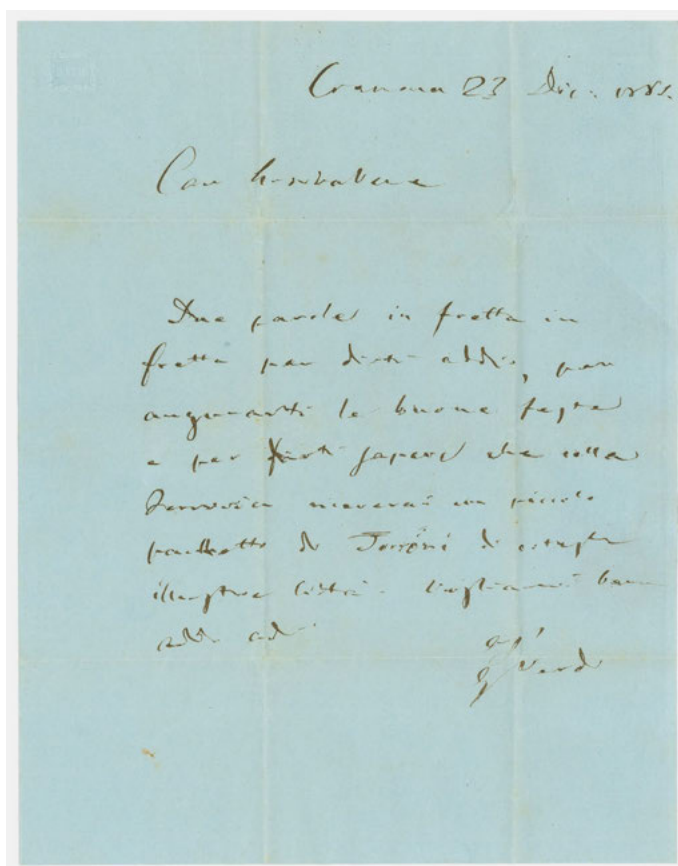 Cremona 23 Dic.
Caro Arrivabene
Due parole in fretta in
fretta per dirti addio, per
augurarti le buone feste
e per farti sapere che colla
Ferrovia riceverai un piccolo
pacchetto di Torroni di questa
illustre Città. Vogliami bene
addio ad
G Verdi